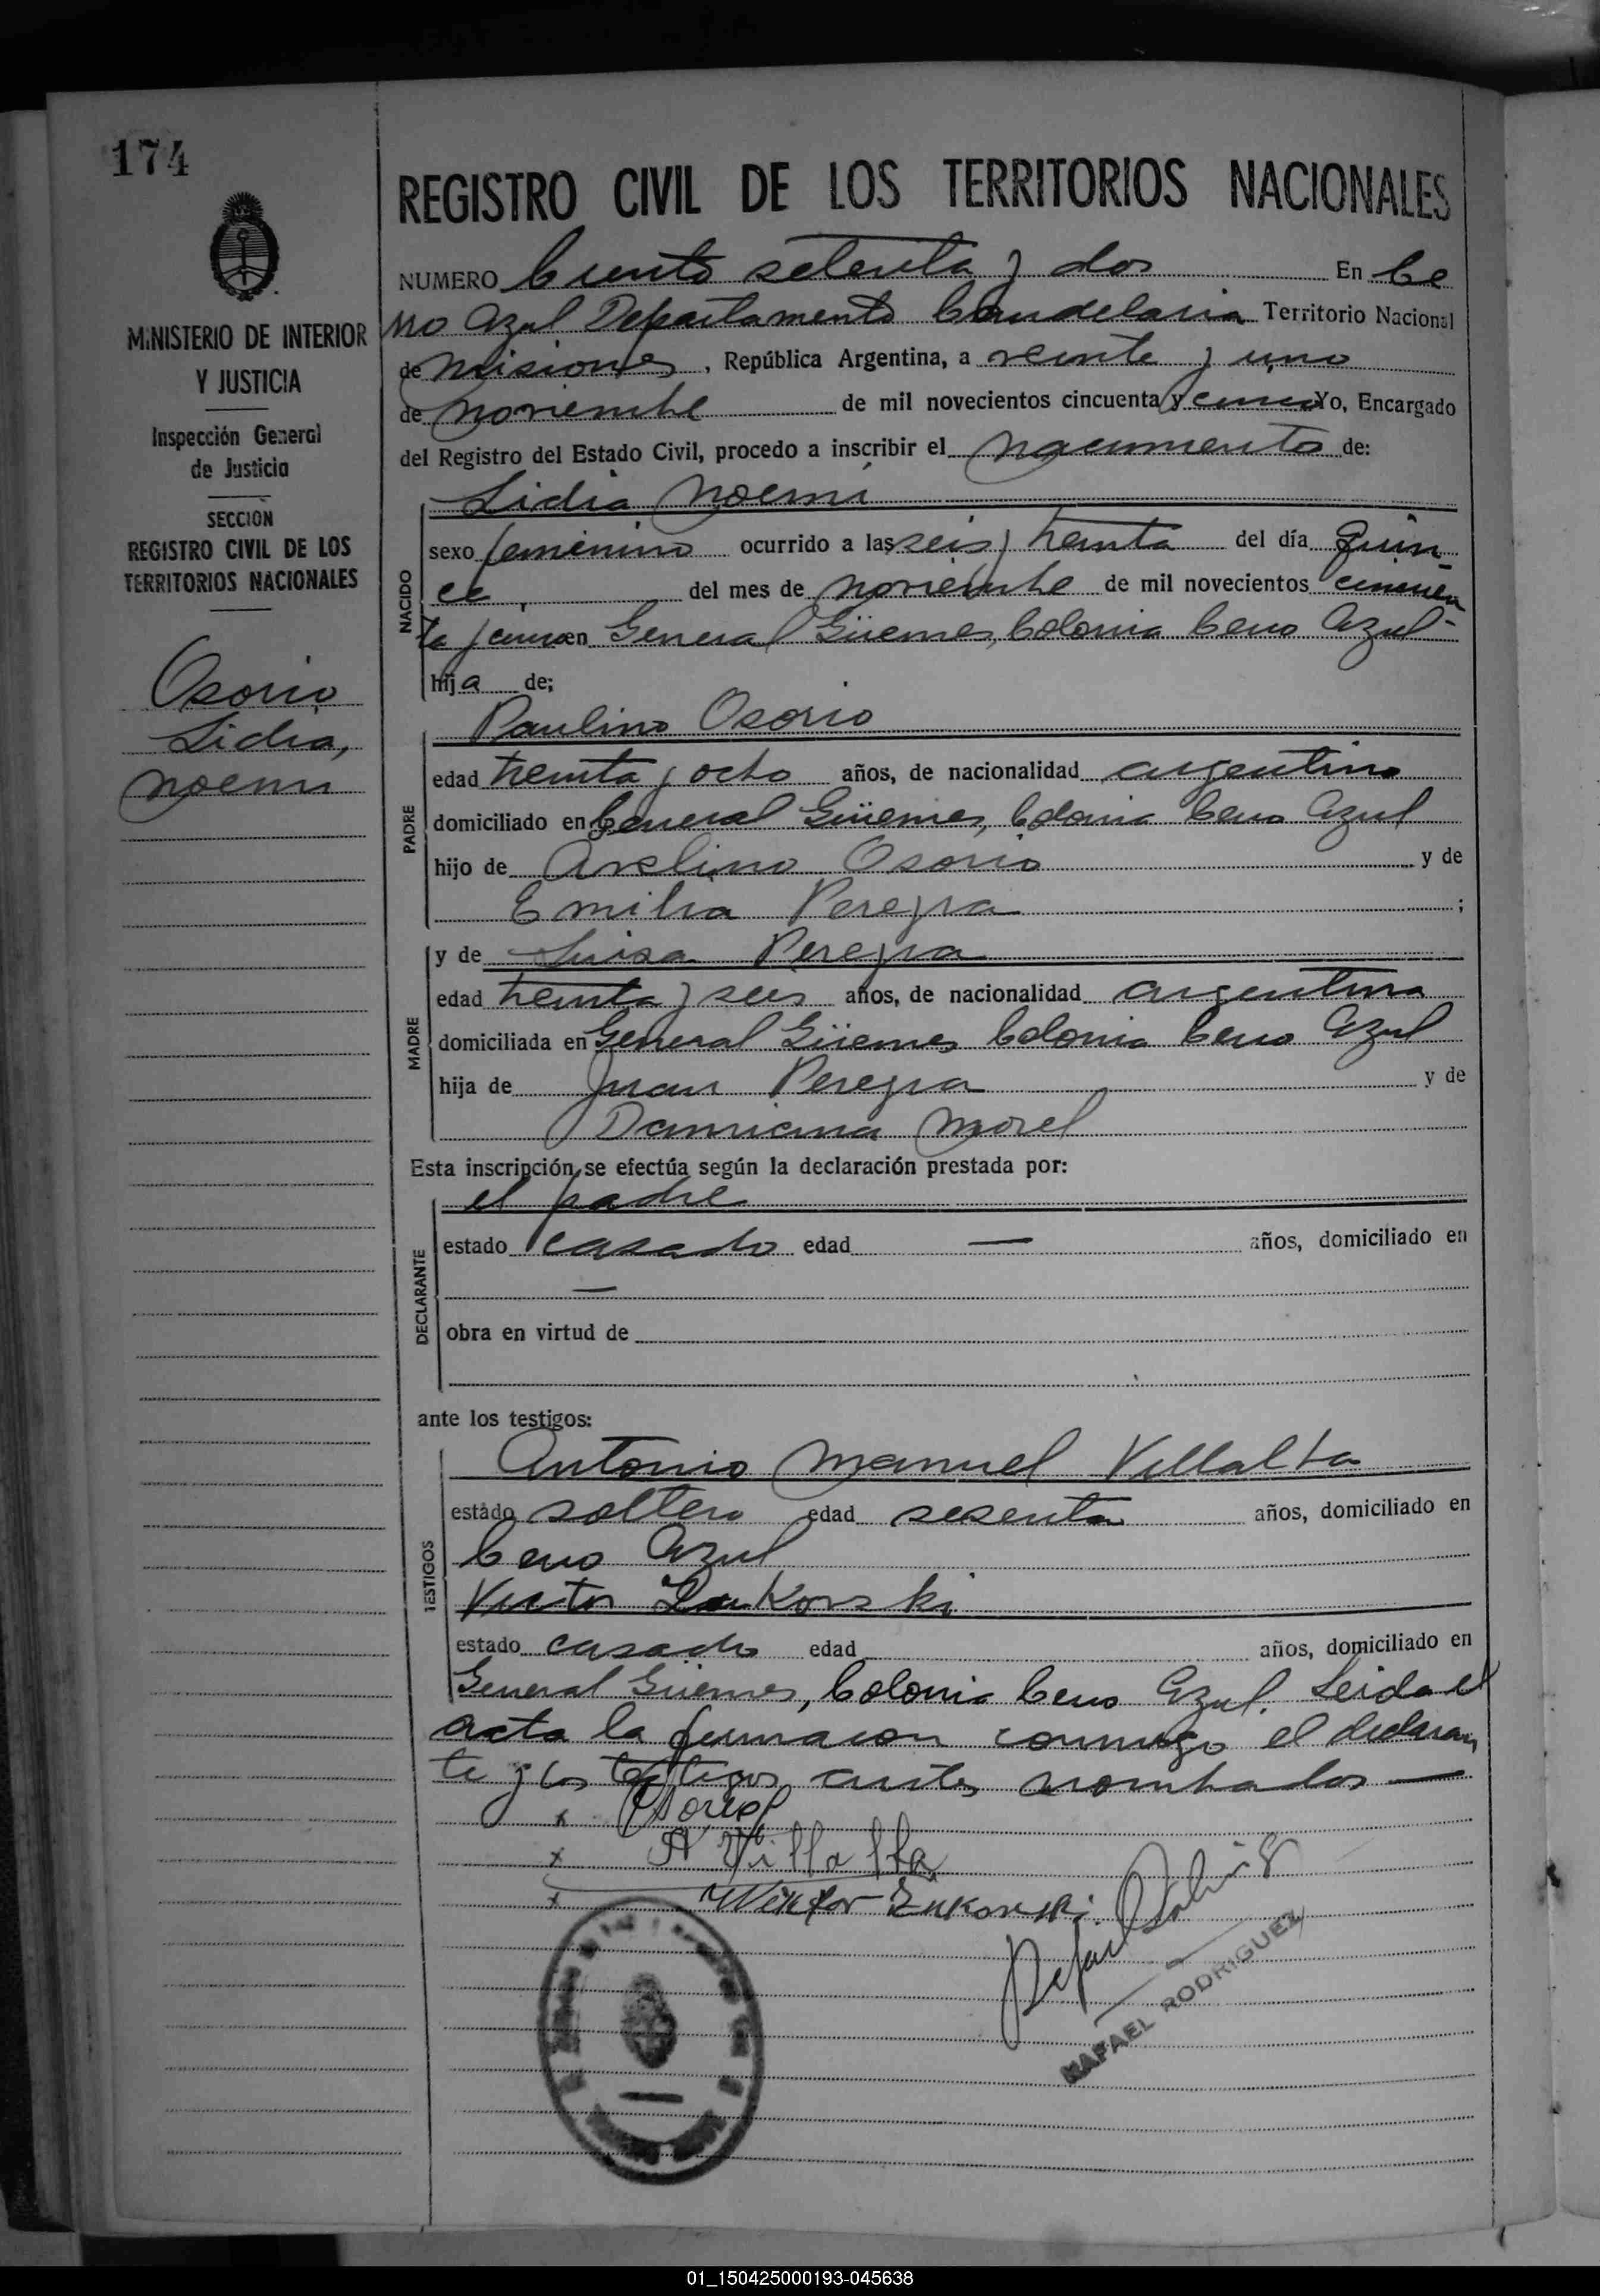 174
MINISTERIO DE INTERIOR
Y JUSTICIA
Inspección General
de Justicia
SECCIÓN
REGISTRO CIVIL DE LOS
TERRITORIOS NACIONALES
Osorio
Lidia,
Noemi
REGISTRO CIVIL DE LOS TERRITORIOS NACIONALES
NUMERO Ciento setenta y dos En Ce
rro Azul Departamento Candelaria Territorio Nacional
de Misiones, República Argentina, a veinte y uno
de noviembre de mil novecientos cincuenta y cinco Yo, Encargado
del Registro del Estado Civil, procedo a inscribir el nacimiento de:
NACIDO
Lidia Noemi
sexo femenino ocurrido a las seis y treinta del día quin
ce del mes de noviembre de mil novecientos cincuen
ta y cinco en General Güemes, Colonia Cerro Azul
hija de;
PADRE
Paulino Osorio
edad treinta y ocho años, de nacionalidad argentino
domiciliado en General Güemes, Colonia Cerro Azul
hijo de Avelino Osorio y de
Emilia Pereyra ;
MADRE
y de Luisa Pereyra
edad treinta y seis años, de nacionalidad argentina
domiciliada en General Güemes Colonia Cerro Azul
hija de Juan Pereyra y de
Damiana Morel
Esta inscripción se efectúa según la declaración prestada por:
DECLARANTE
el padre
estado casado edad — años, domiciliado en
—
obra en virtud de
ante los testigos:
TESTIGOS
Antonio Manuel Villalba
estado soltero edad sesenta años, domiciliado en
Cerro Azul
Victor Zukovski
estado casado edad años, domiciliado en
General Güemes, Colonia Cerro Azul. Leida el
acta la firmaron conmigo el declaran
te y los testigos antes nombrados —
x Osorio
x A Villalba
x Wiktor Zukowski
RAFAEL RODRIGUEZ
01_150425000193-045638